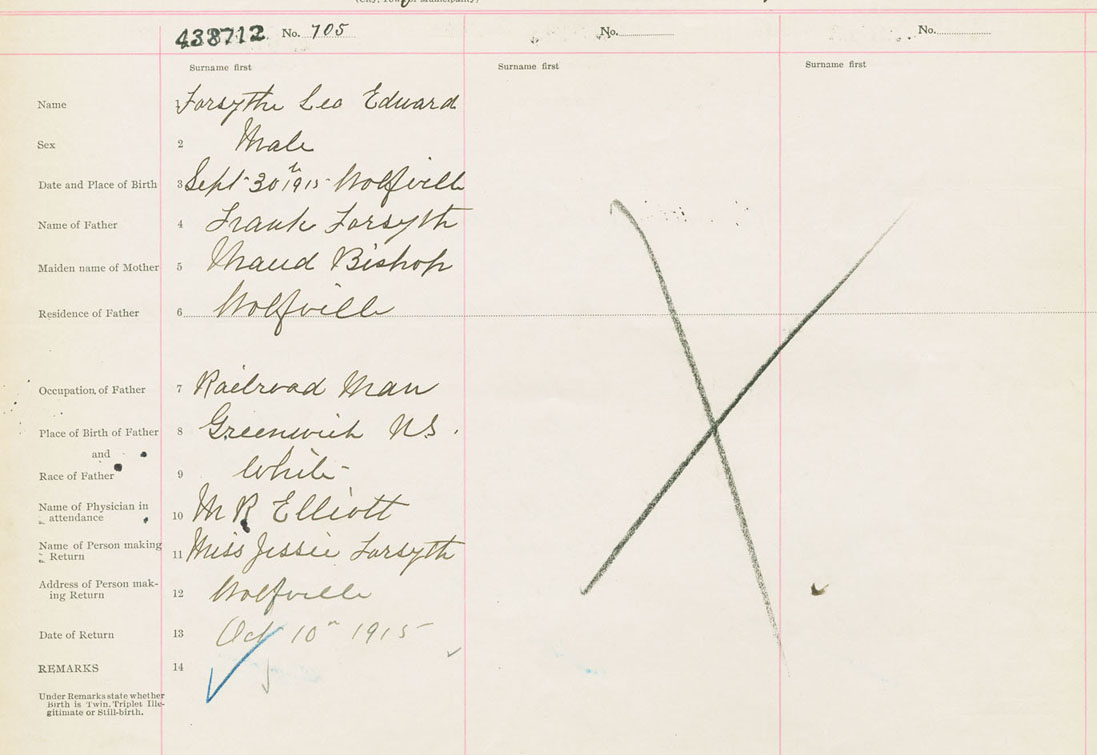 (City, Town or Municipality)
438712 No. 705 No. No.
Surname first Surname first Surname first
Name 1 Forsythe Leo Edward
Sex 2 Male
Date and Place of Birth 3 Sept 30th 1915 Wolfville
Name of Father 4 Frank Forsyth
Maiden name of Mother 5 Maud Bishop
Residence of Father 6 Wolfville
Occupation of Father 7 Railroad Man
Place of Birth of Father 8 Greenwich N.S.
and
Race of Father 9 White
Name of Physician in
attendance 10 M R Elliott
Name of Person making
Return 11 Miss Jessie Forsyth
Address of Person mak-
ing Return 12 Wolfville
Date of Return 13 Oct 10th 1915
REMARKS 14
Under Remarks state whether
Birth is Twin, Triplet Ille-
gitimate or Still-birth.